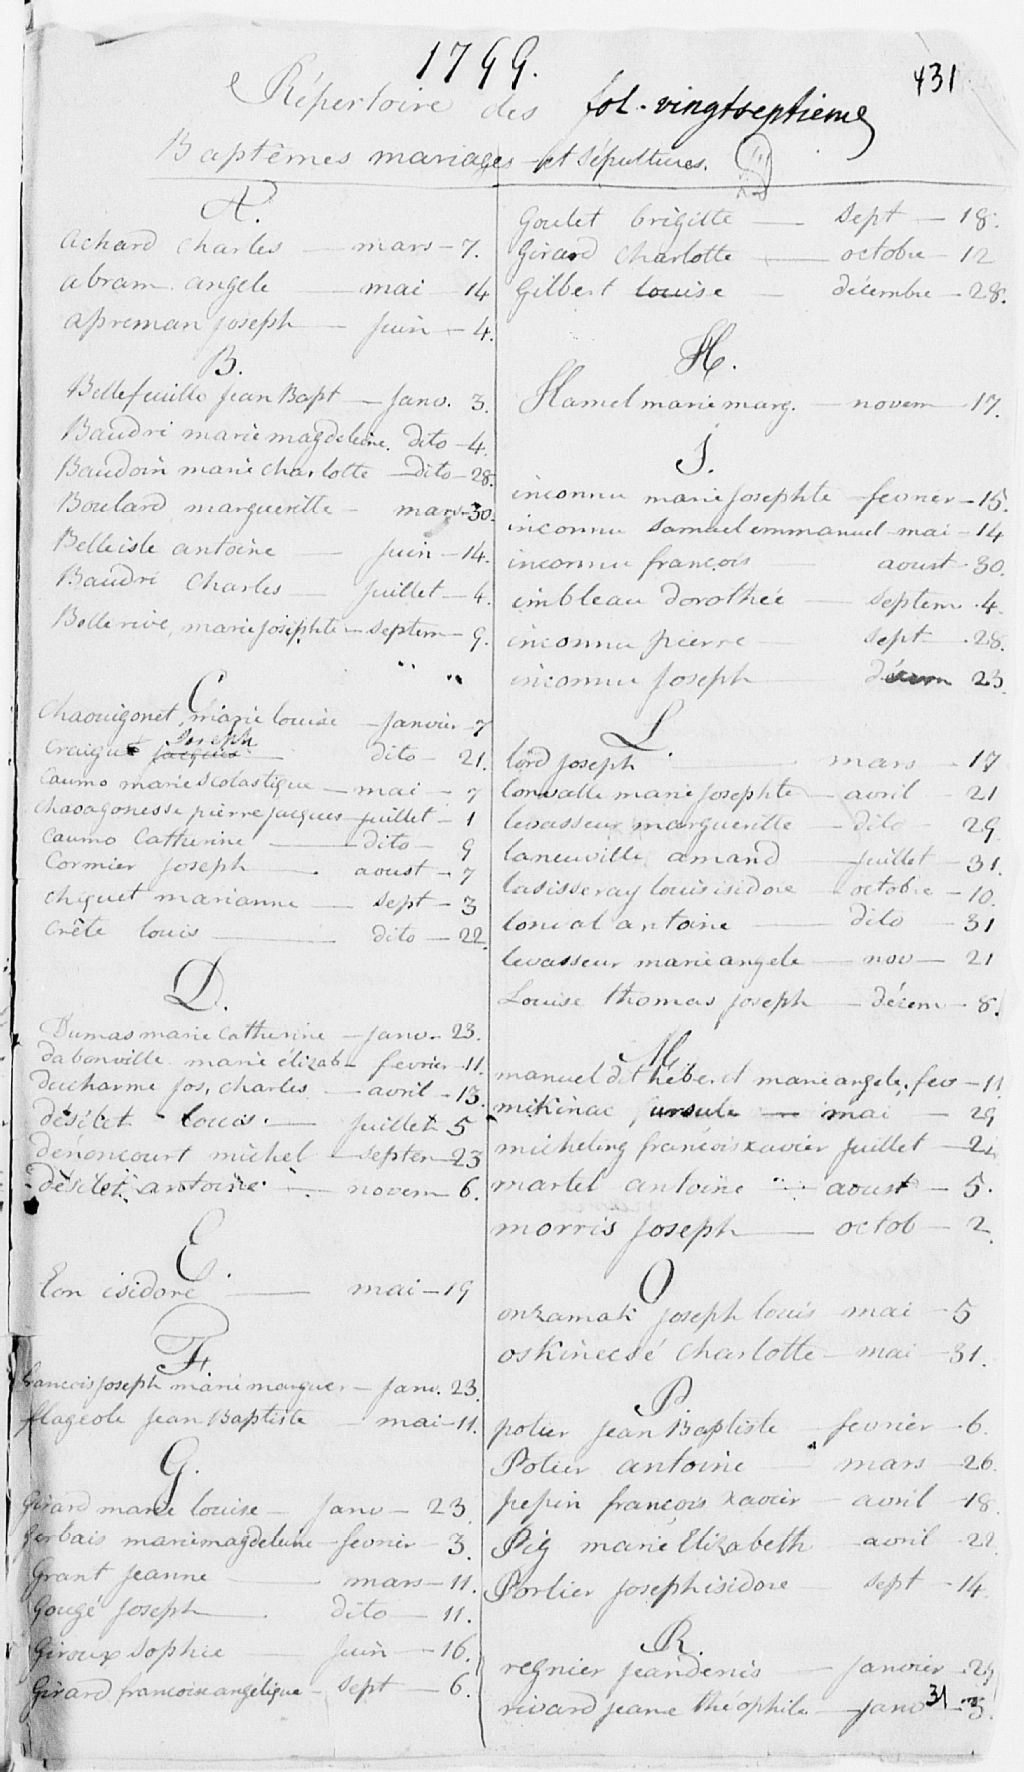 1799.
431
Répertoire des fol. vingtseptieme
Baptêmes mariages et sépultures.
A.
achard charles — mars — 7.
abram angele — mai — 14
apreman joseph — juin — 4.
B.
Bellefeuille jean Bapt — janv. 3.
Baudri marie magdeleine. dito — 4.
Baudoin marie charlotte — dito — 28.
Boulard margueritte — mars — 30.
Belleisle antoine — juin — 14.
Baudri Charles — juillet — 4.
Bellerive, marie josephte — septem — 9.
C.
chaouigonet marie louise — janvier — 7
Joseph
craigut jacques — dito — 21.
Caumo marie scolastique — mai — 7
chaoagonesse pierre jacques — juillet — 1
caumo Catherine — dito — 9
Cormier joseph — aoust — 7
chiquet marianne — sept — 3
crête louis — dito — 22.
D.
Dumas marie catherine — janv. 23.
dabonville marie élizab — fevrier — 11.
ducharme jos, charles — avril — 13.
désilet louis. — juillet 5
dénoncourt michel — septem — 23
désilet antoine — novem — 6.
E.
Eon isidore — mai — 19
F.
francois joseph marie marguer — janv. 23.
flageole jean Baptiste — mai — 11.
G.
Girard marie louise — janv — 23.
gerbais marie magdeleine — fevrier — 3.
Grant jeanne — mars — 11.
Gougé joseph — dito — 11.
Giroux sophie — juin — 16.
Girard francoise angélique — sept — 6.
Goulet brigitte — sept — 18.
Girard charlotte — octobre — 12
Gilbert louise — décembre — 28.
H.
Hamel marie marg. — novem — 17.
J.
inconnu marie josephte — fevrier — 15.
inconnu samuel emmanuel — mai — 14
inconnu françois — aoust — 30.
imbleau dorothée — septem. 4.
inconnu pierre — sept — 28.
inconnu joseph — décem 23.
L.
lord joseph — mars — 17
lonvalle marie josephte — avril — 21
levasseur margueritte — dito — 29
laneuville amand — juillet — 31.
lasisseray louis isidore — octobre — 10.
lonval antoine — dito — 31
levasseur marie angele — nov — 21
Louise thomas joseph — décem — 8.
M.
manuel dit hébert marie angele, fev — 11.
mikinac ursule — mai — 29
micheling françois xavier juillet — 21
martel antoine — aoust — 5.
morris joseph — octob — 2.
O
onzamak joseph louis mai — 5
oskinecsé charlotte — mai — 31.
P.
potier jean Baptiste — fevrier — 6.
Potier antoine — mars — 26.
pepin françois xavier — avril — 18.
Pig marie Elizabeth — avril — 22.
Portier joseph isidore — sept — 14.
R.
regnier jean denis — janvier — 29
rivard jeanne theophile — janv 31 — 3.